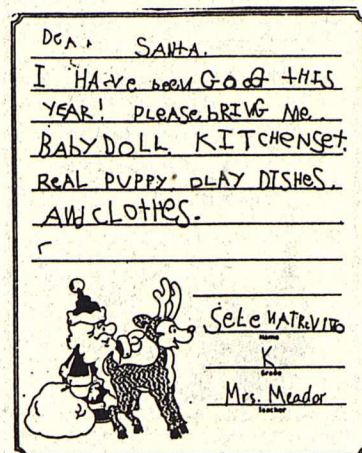 Dear SANTA.
I HAVE been GOOd tHIS
YEAR! PLEASE bRING Me.
BABY DOLL. KITCHENSet.
REAL PUPPY. PLAY DISHes.
ANd cLOtHes.
SeLeNATReVITO
Name
K
Grade
Mrs. Meador
Teacher